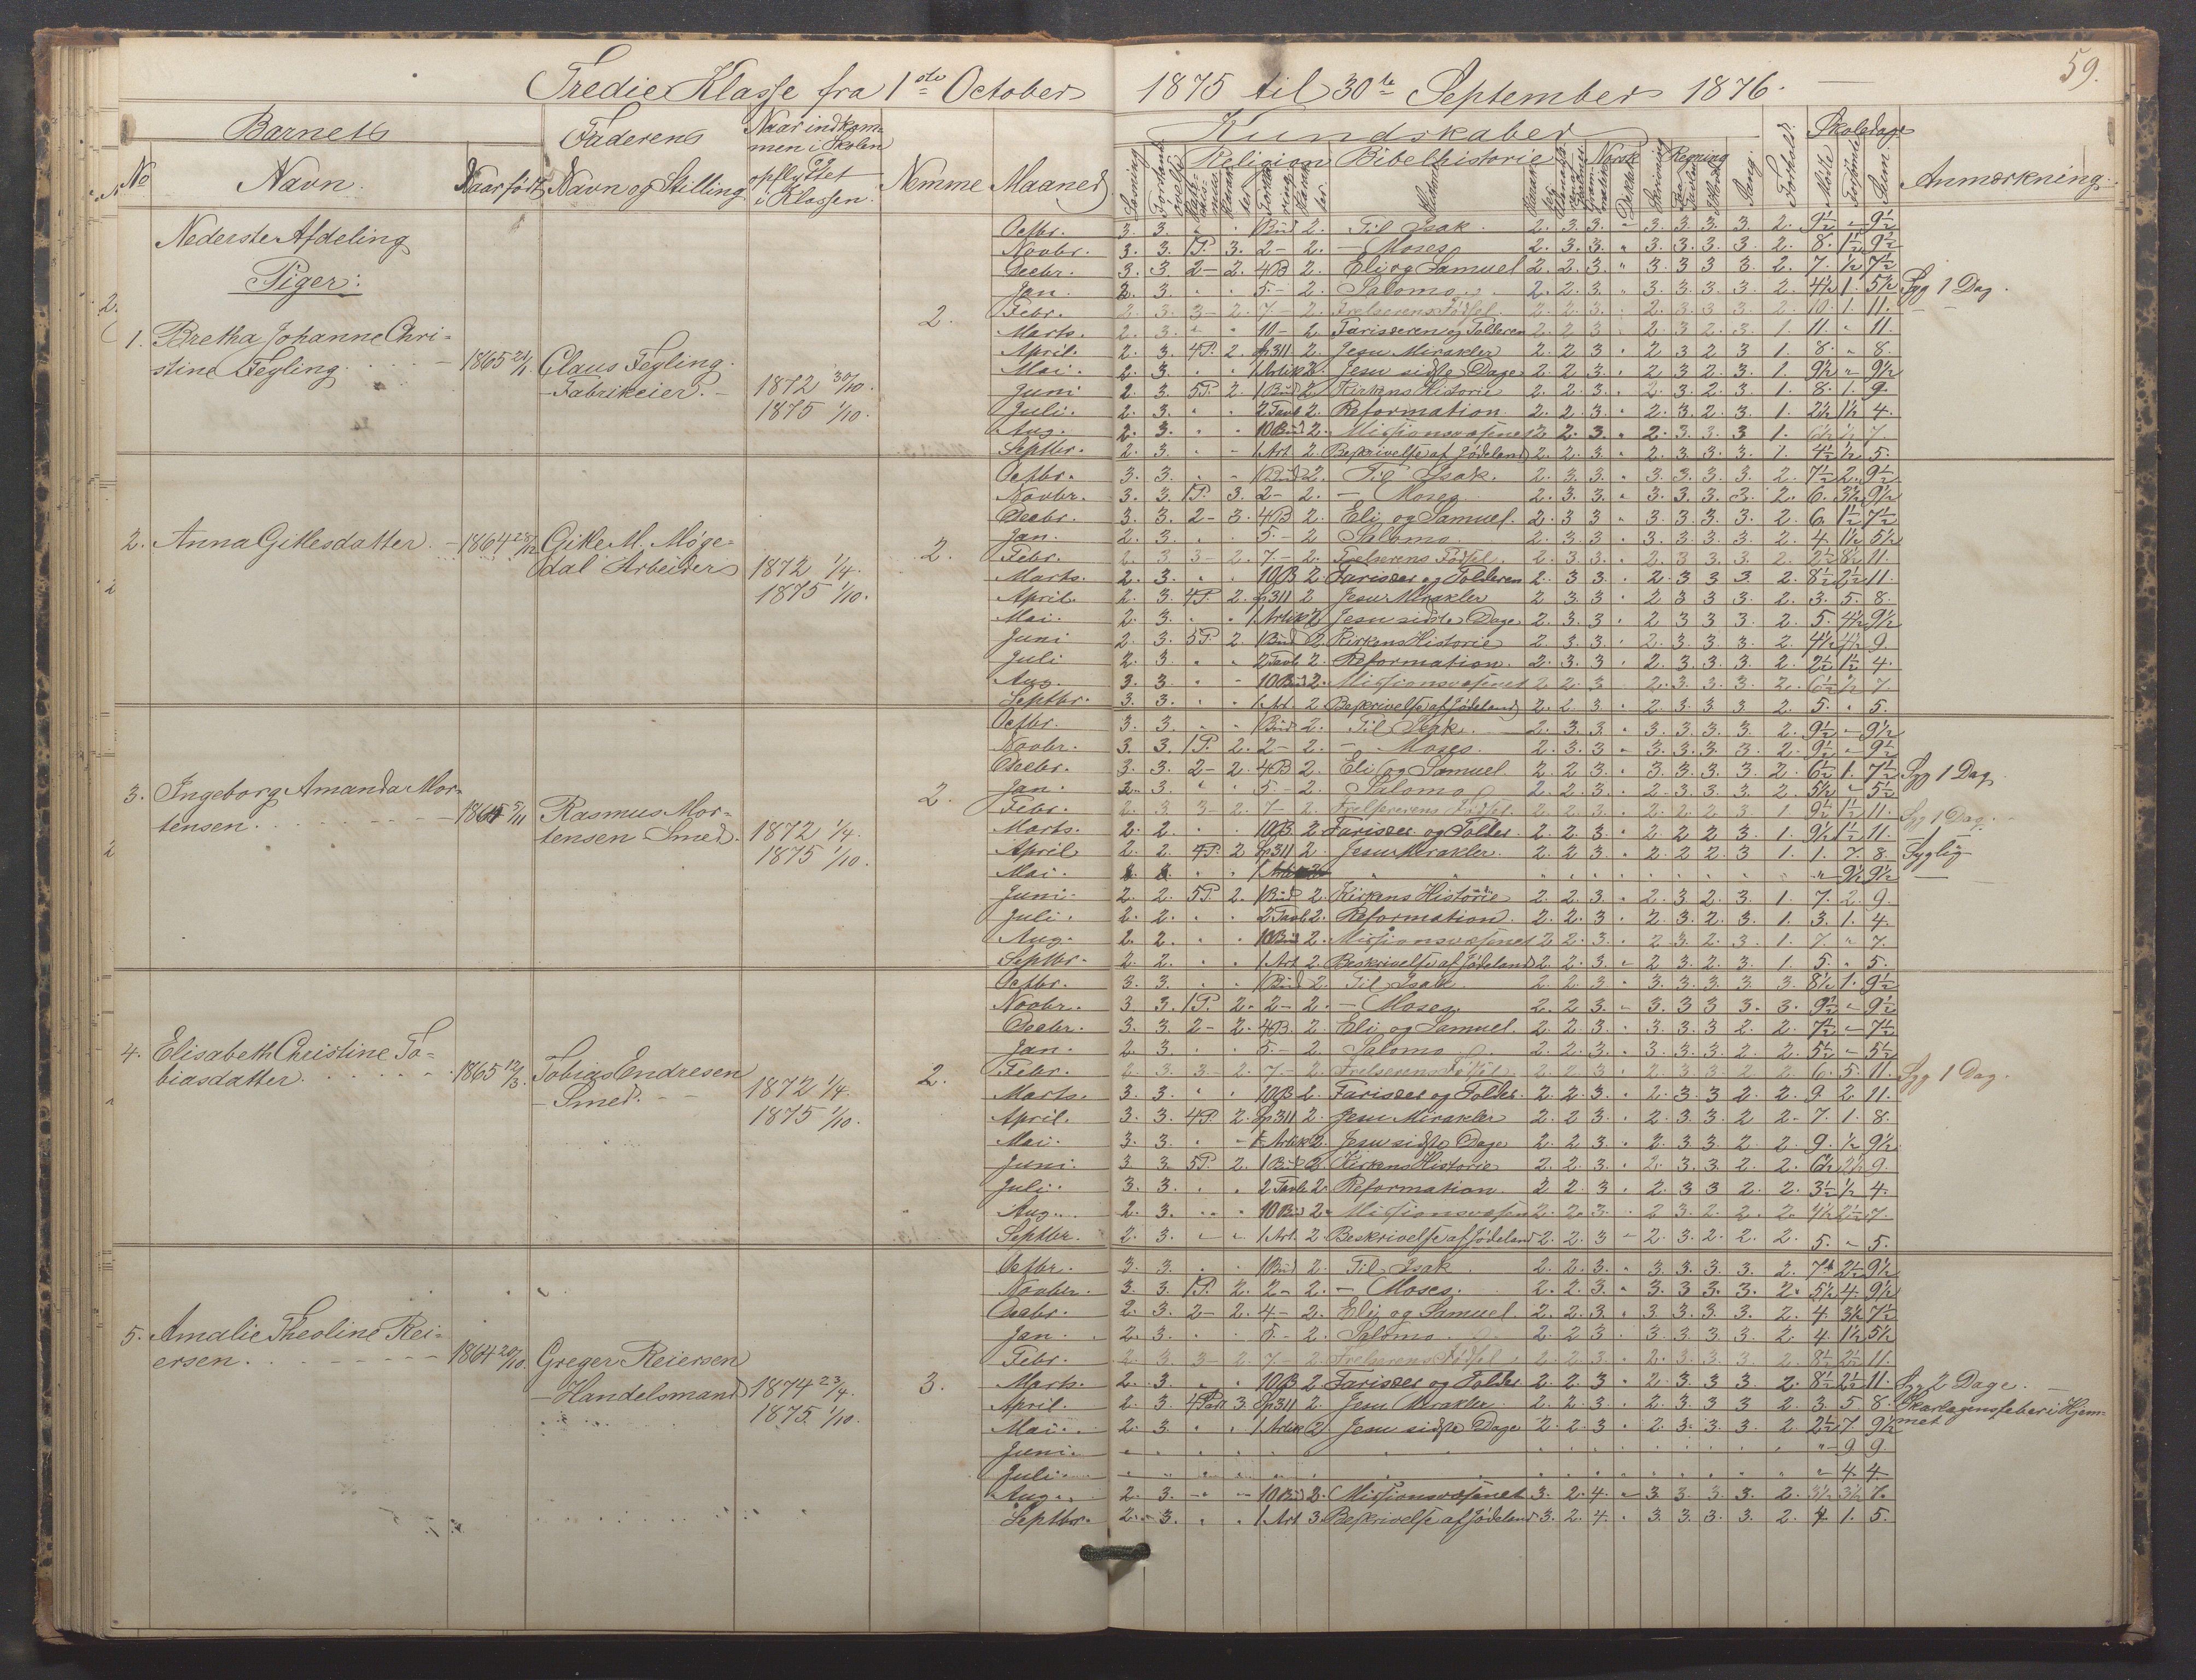 59.
Tredie Klasse fra 1ste October 1875 til 30te September 1876.
Barnets
Faderens
Naar indkom-
men i Skolen
opflyttet
i Klassen.
No
Navn.
Naar født
Navn og Stilling
Nemme
Maaned
Kundskaber
Religion
Bibelhistorie
Norsk
Regning
Sang.
Forhold.
Skoledage
Mødte
Forsømte
Sum
Anmærkning.
Nederste Afdeling
Piger:
1. Bretha Johanne Chri-
stine Tegling.
1865
Claus Tegling.
Fabrikeier.
1872 30/10.
1875 1/10.
2.
Octbr. 3. 3. 1 Bud 2. Til Isak. 2. 3. 3. 3. 3. 3. 3. 2. 9½ 9½
Novbr. 3. 3. 1P. 3. 2 - 2. - Moses. 2. 3. 3. 3. 3. 3. 3. 2. 8. 1½ 9½
Decbr. 3. 3. 2 - 2. 4B 2. Eli og Samuel 2. 2. 3. 3. 3. 3. 3. 2. 7. ½ 7½
Jan. 3. 5. - 2. Salomo. 2. 2. 3. 3. 3. 3. 3. 2. 4½ 1. 5½ Syg 1 Dag.
Febr. 2. 3. 3 - 2. 7. - 2. Frelserens Fødsel. 2. 2. 3. 2. 3. 3. 3. 2. 10. 1. 11.
Marts. 2. 3. 10 - 2. Farisæeren og Tolderen 2. 2. 3. 2. 3. 2. 3. 1. 11. 11.
April. 2. 3. 4P. 2. Sp311 2. Jesu Mirakler 2. 2. 3. 2. 3. 2. 3. 1. 8. 8.
Mai. 2. 3. 1 Artik 2. Jesu sidste Dage 2. 2. 3. 2. 3. 2. 3. 1. 9½ 9½
Juni 2. 3. 5P. 2. 1 Bud 2. Kirkens Historie 2. 2. 3. 2. 3. 2. 3. 1. 8. 1. 9.
Juli. 2. 3. 2 Tavle 2. Reformation. 2. 2. 3. 2. 3. 2. 3. 1. 2½ 1½ 4.
Aug. 2. 3. 10 Bud 2. Missionsvæsenet 2. 2. 3. 2. 3. 3. 3. 1. 6½ ½ 7.
Septbr. 2. 3. 1 Art. 2. Beskrivelse af Jødeland 2. 2. 3. 2. 3. 3. 3. 1. 4½ ½ 5.
2. Anna Gitlesdatter.
1864 28/12
Gitle M. Møge-
dal Arbeider
1872 1/4.
1875 1/10.
2.
Octbr. 3. 3. 1 Bud 2. Til Isak. 2. 3. 3. 3. 3. 3. 3. 2. 7½ 2. 9½
Novbr. 3. 3. 1P. 3. 2 - 2. - Moses. 2. 3. 3. 3. 3. 3. 3. 2. 6. 3½ 9½
Decbr. 3. 3. 2 - 3. 4B 2. Eli og Samuel. 2. 3. 3. 3. 3. 3. 3. 2. 6. 1½ 7½
Jan. 2. 3. 5. - 2 Salomo. 2. 3. 3. 3. 3. 3. 3. 2. 4. 1½ 5½
Febr. 2. 3. 3 - 2. 7. - 2. Frelserens Fødsel 2. 3. 3. 2. 3. 3. 3. 2. 2½ 8½ 11.
Marts. 2. 3. 10B 2. Farisæer og Tolderen 2. 3. 3. 2. 3. 3. 3. 2. 8½ 2½ 11.
April. 2. 3. 4P. 2. Sp311 2 Jesu Mirakler 2. 3. 3. 2. 3. 3. 3. 2. 3. 5. 8.
Mai. 2. 3. 1 Artik 2. Jesu sidste Dage 2. 3. 3. 2. 3. 3. 3. 2. 5. 4½ 9½
Juni 2. 3. 5P. 2. 1 Bud 2. Kirkens Historie 2. 3. 3. 2. 3. 3. 3. 2. 4½ 4½ 9.
Juli 2. 3. 2 Tavle 2. Reformation. 2. 3. 3. 2. 3. 3. 3. 2. 2½ 1½ 4.
Aug. 3. 3. 10 Bud 2. Missionsvæsenet 2. 2. 3 2. 3. 3. 3. 2. 6½ ½ 7.
Septbr. 3. 3. 1 Art. 2 Beskrivelse af Jødeland 2. 2. 3 2. 3. 3. 3 2. 5. 5.
3. Ingeborg Amanda Mor-
tensen.
5/11
Rasmus Mor-
tensen Smed.
1872 1/4.
1875 1/10.
2.
Octbr. 3. 3. 1 Bud 2. Til Isak. 2. 3. 3. 3. 3. 3. 3. 2. 9½ 9½
Novbr. 3. 3. 1P. 2. 2 - 2. - Moses. 2. 3. 3. 3. 3. 3. 3. 2. 9½ 9½
Decbr. 3. 3. 2 - 2. 4B 2. Eli og Samuel. 2. 2. 3. 3. 3. 3. 3. 2. 6½ 1. 7½ Syg 1 Dag
Jan. 2. 3. 5. - 2. Salomo 2. 2. 3. 2. 3. 3. 3. 2. 5½ 5½
Febr. 2. 3. 3 - 2. 7. - 2. Frelserens Fødsel. 2. 2. 3. 2. 2. 2. 3. 1. 9½ 1½ 11. Syg 1 Dag.
Marts. 2. 2. 10B. 2 Farisæer og Tolder. 2. 2. 3. 2. 2. 2. 3. 1. 9½ 1½ 11. - 1 -
April 2. 2. 4P. 2 Sp311 2. Jesu Mirakler. 2. 2. 3. 2. 2. 2. 3 1. 1. 7. 8. Syglig
Mai. 9½ 9½
Juni 2. 2. 5P. 2. 1 Bud 2. Kirkens Historie 2. 2. 3. 2. 3. 2. 3. 1. 7. 2. 9.
Juli. 2. 2. 2 Tavle 2. Reformation. 2. 2. 3. 2. 3. 2. 3. 1. 3. 1. 4.
Aug. 2. 2. 10 Bud 2. Missionsvæsenet 2. 2. 3. 2. 3. 2. 3. 1. 7. 7.
Septbr. 2. 2. 1 Art. 2. Beskrivelse af Jødeland 2. 2. 3. 2. 3. 2. 3. 1. 5. 5.
4. Elisabeth Christine To-
biasdatter.
1865 12/3.
Tobias Endresen
Smed.
1872 1/4.
1875 1/10.
2.
Octbr. 3. 3. 1 Bud 2. Til Isak 2. 2. 3. 3. 3. 3. 3. 3. 8½ 1. 9½
Novbr. 3 3. 1P. 2. 2 - 2. - Moses. 2. 2. 3. 3. 3. 3. 3. 3. 9½ 9½
Decbr. 3. 3. 2 - 2. 4B. 2. Eli og Samuel. 2. 2. 3. 3. 3. 3. 2. 2. 7½ 7½
Jan. 2. 3. 5. - 2. Salomo 2. 2. 3. 3. 3. 3. 2. 2. 5½ 5½
Febr. 2. 3. 3 - 2. 7. - 2. Frelserens Fødsel. 2. 2. 3. 2. 3. 3. 2. 2. 6. 5. 11. Syg 1 Dag.
Marts. 3. 3. 10B 2. Farisæer og Tolder. 2. 2. 3. 2. 3. 3. 2. 2. 9 2 11.
April. 3. 3. 4P. 2. Sp311 2. Jesu Mirakler 2. 2. 3. 2. 3. 3. 2 2. 7. 1. 8.
Mai. 3. 3. 1 Artik 2. Jesu sidste Dage 2. 2. 3. 2. 3. 3. 2. 2. 9. ½ 9½
Juni. 3 3. 5P. 2. 1 Bud 2. Kirkens Historie 2. 2. 3. 2. 3. 3. 2. 2. 6½ 2½ 9.
Juli. 3. 3. 2 Tavle 2. Reformation. 2 2. 3. 2. 3 3 2. 2. 3½ ½ 4.
Aug. 2. 3. 10 Bud 2. 2. 2. 3. 2 3. 2. 2. 2. 4½ 2½ 7.
Septbr. 2. 3. 1 Art. 2 Beskrivelse af Jødeland 2. 2. 3 2. 3. 2. 2. 2. 5. 5.
5. Amalie Theoline Rei-
ersen.
1864 20/10.
Greger Reiersen
Handelsmand
1874 23/4.
1875. 1/10.
3.
Octbr. 3. 3. 1 Bud 2. Til Isak. 2. 2. 3. 3. 3. 3. 3. 2. 7. 2½ 9½
Novber. 3. 3. 1P. 2. 2 - 2. - Moses. 2. 2. 3. 3. 3. 3. 3. 2. 5½ 4. 9½
Decbr. 2. 3. 2 - 2. 4 - 2. Eli og Samuel. 2. 2. 3. 3. 3. 3. 3. 2. 4. 3½ 7½
Jan. 2. 3. 5. - 2. Salomo. 2. 2 3 3. 3. 3. 3. 2. 4. 1½ 5½
Febr. 2. 3. 3 - 2. 7 - 2. Frelserens Fødsel. 2. 2. 3. 2. 3. 3. 3. 2. 8½ 2½ 11.
Marts. 2. 3. 10B 2 Farisæer og Tolder. 2. 2. 3. 2. 3. 3. 3. 2. 8½ 2½ 11. Syg 2 Dage.
April. 2. 3. 4Part. 3. Sp311 2. Jesu Mirakler. 2. 2. 3. 2. 3. 3. 3 2. 3. 5 8. Skarlagensfeber i Hjem-
met
Mai. 2. 3. 1 Artik 2 Jesu sidste Dage 2. 2. 3 2. 3. 3. 3. 2. 2½ 7. 9½
Juni. 9. 9.
Juli 4. 4.
Aug. 2. 3. 10 Bud 3. Missionsvæsenet 3. 2. 4. 3. 3. 3. 3. 2. 3½ 3½ 7.
Septbr. 2. 3. 1 Art 3. Beskrivelse af Jødeland 3. 2. 4. 3. 3. 3. 3. 2. 4. 1. 5.